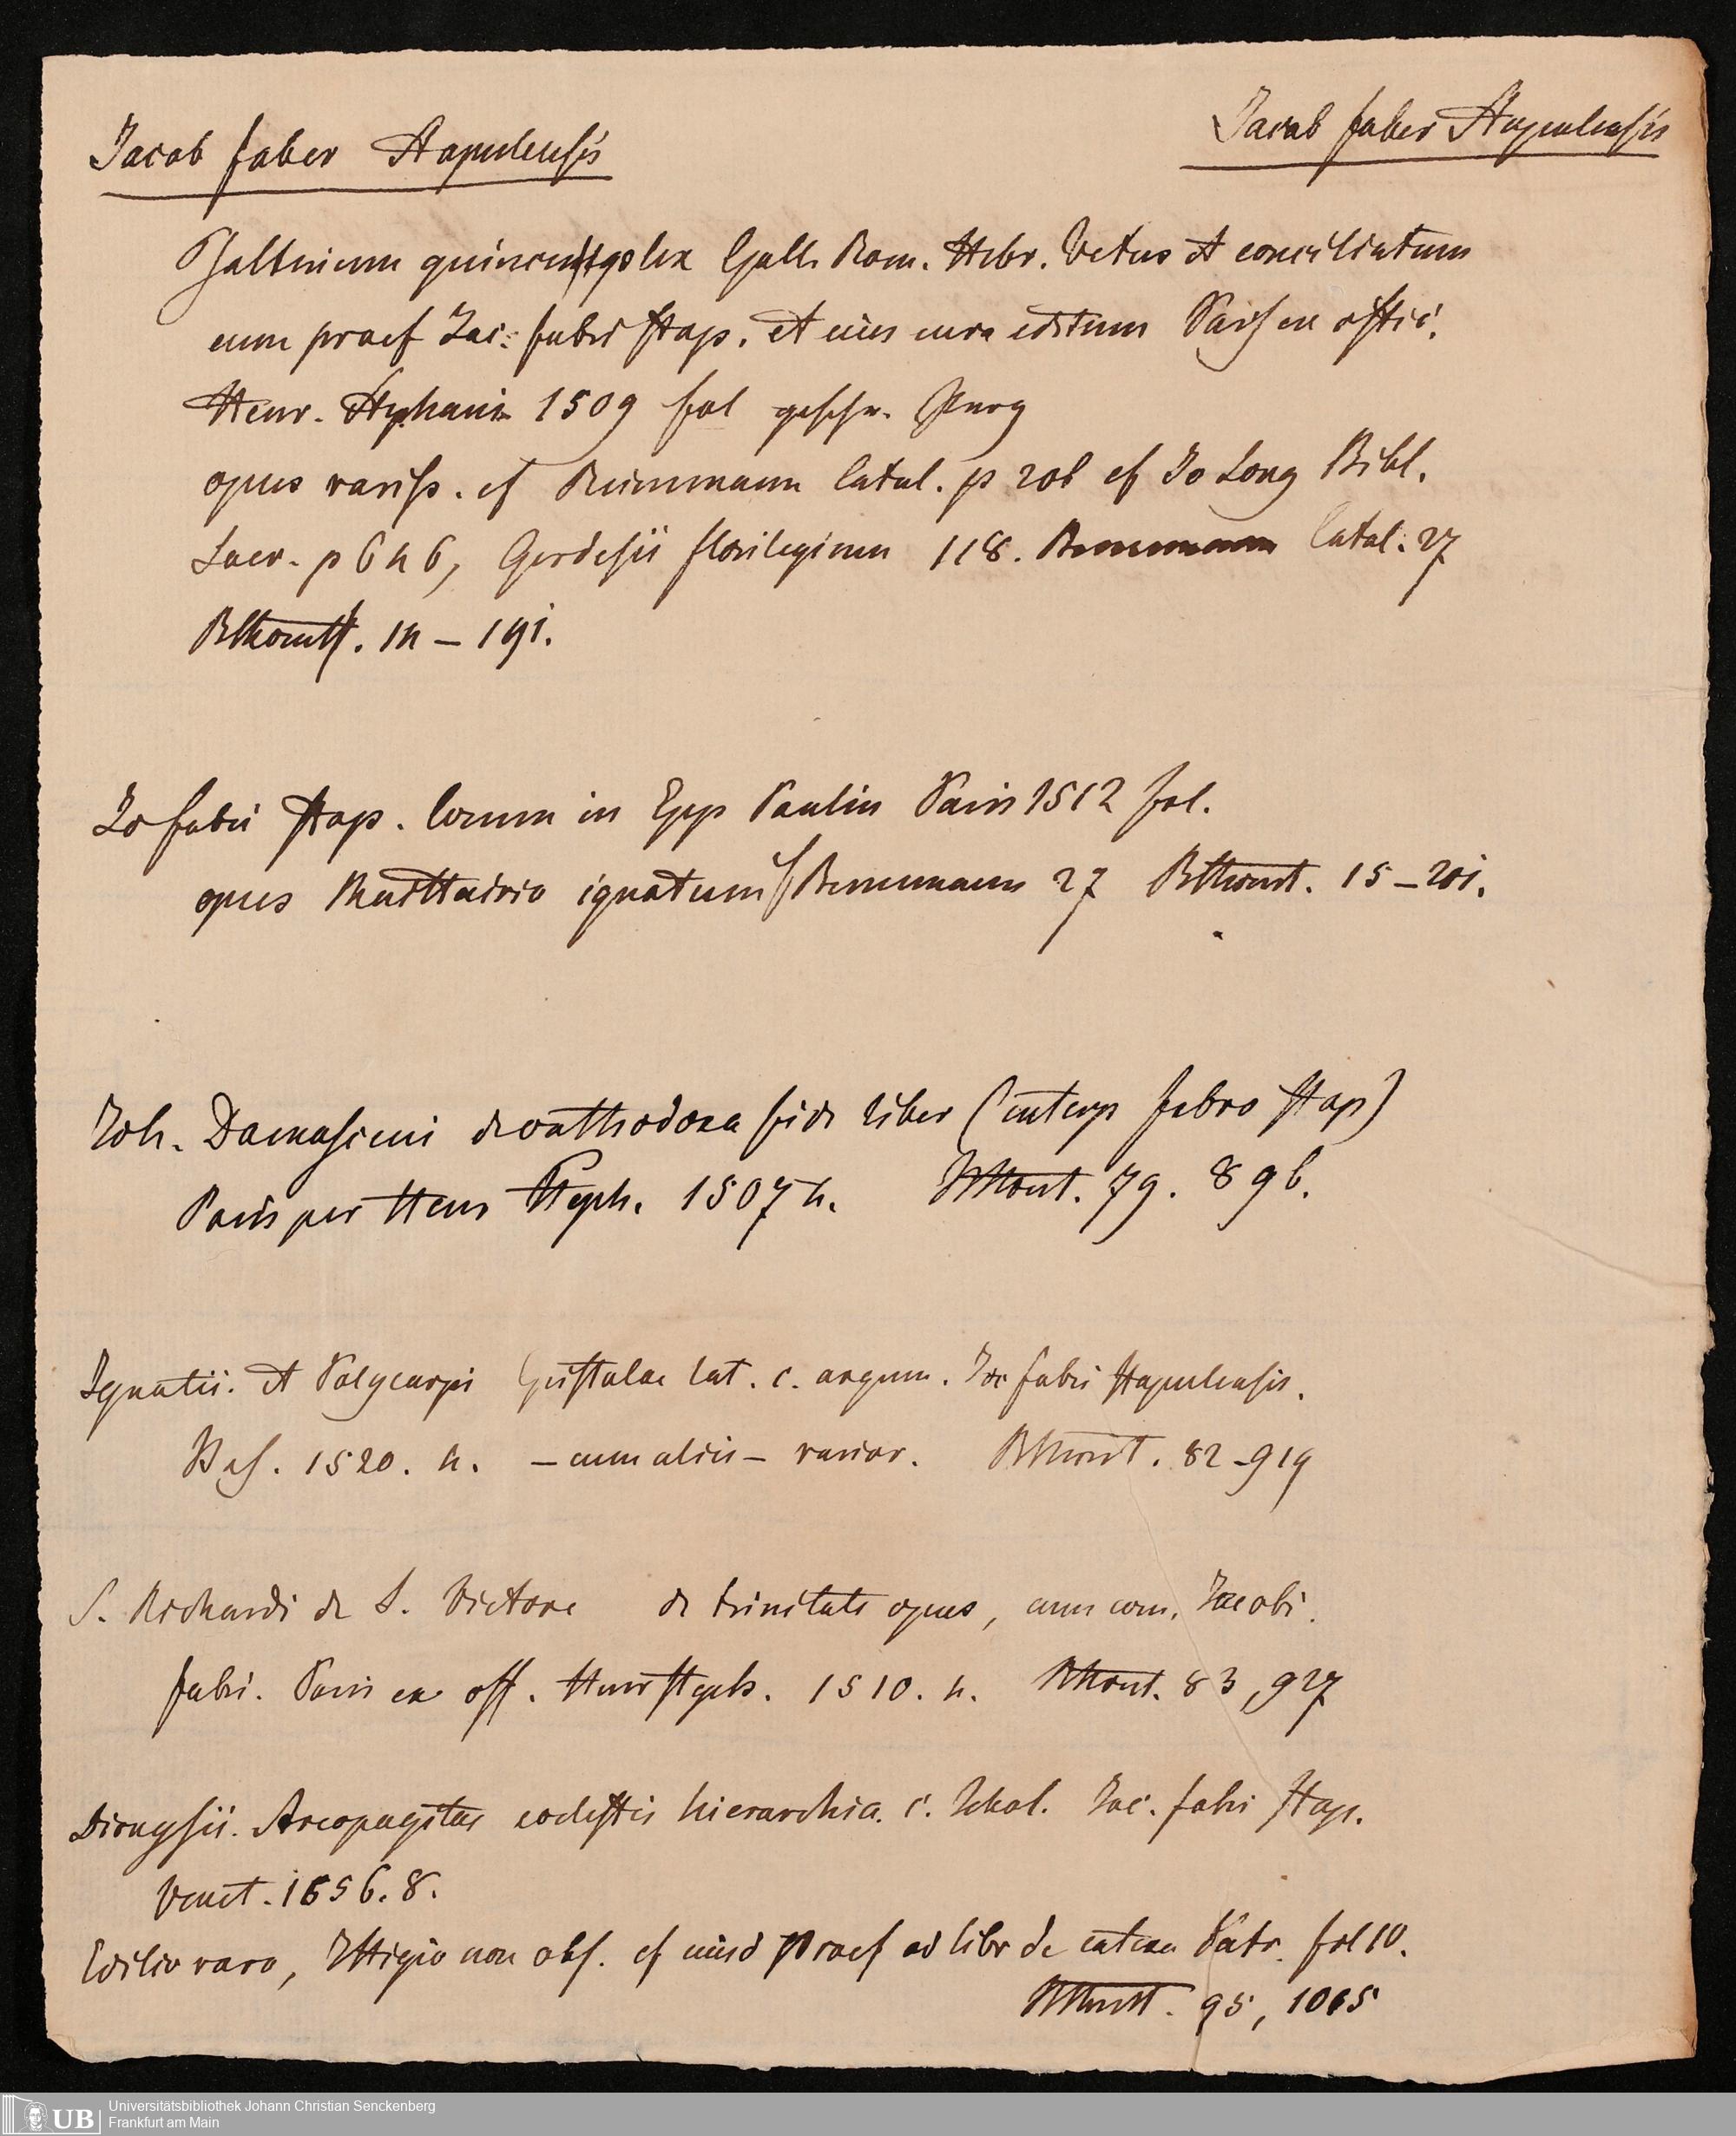 Jacob Faber Stapulensis
Jacob Faber Stapulensis
Psalterium quincuplex Gall. Rom. Hebr. Vetus et conciliatum
cum praef Jac. Fabri Stap. et eius cura editum Paris ex offic.
Henr. Stephani 1509 fol
opus rariss. cf Reimmann Catal. p 206 cf Jo Long Bibl.
Sacr. p 646, Gerdesii florilegium 118. Catal. 27
14 – 191.
Jo Fabri Stap. Comm in Epp Paulin Paris 1512 fol.
opus Maittairio ignotum 27 15 – 201.
Joh. Damasceni de orthodoxa fide liber (interp Fabro Stap)
Paris per Henr Steph. 1507 4. 79. 896.
Ignatii. et Polycarpi Epistolae lat. c. argum. Jac Fabri Stapulensis.
Bas. 1520. 4. – cum aliis – rarior. 82 – 919
S. Richardi de S. Victore de trinitate opus, cum com. Jacobi.
Fabri. Paris ex off. Henr Steph. 1510. 4. 83, 927
Dionysii. Areopagitae coelestis hierarchia. c. Schol. Jac. Fabri Stap.
Venet. 1556. 8.
Editio rara, Ittigio non obs. cf eiusd Praef ad libr de catena Patr. fol 10.
95, 1065
UB
Universitätsbibliothek Johann Christian Senckenberg
Frankfurt am Main